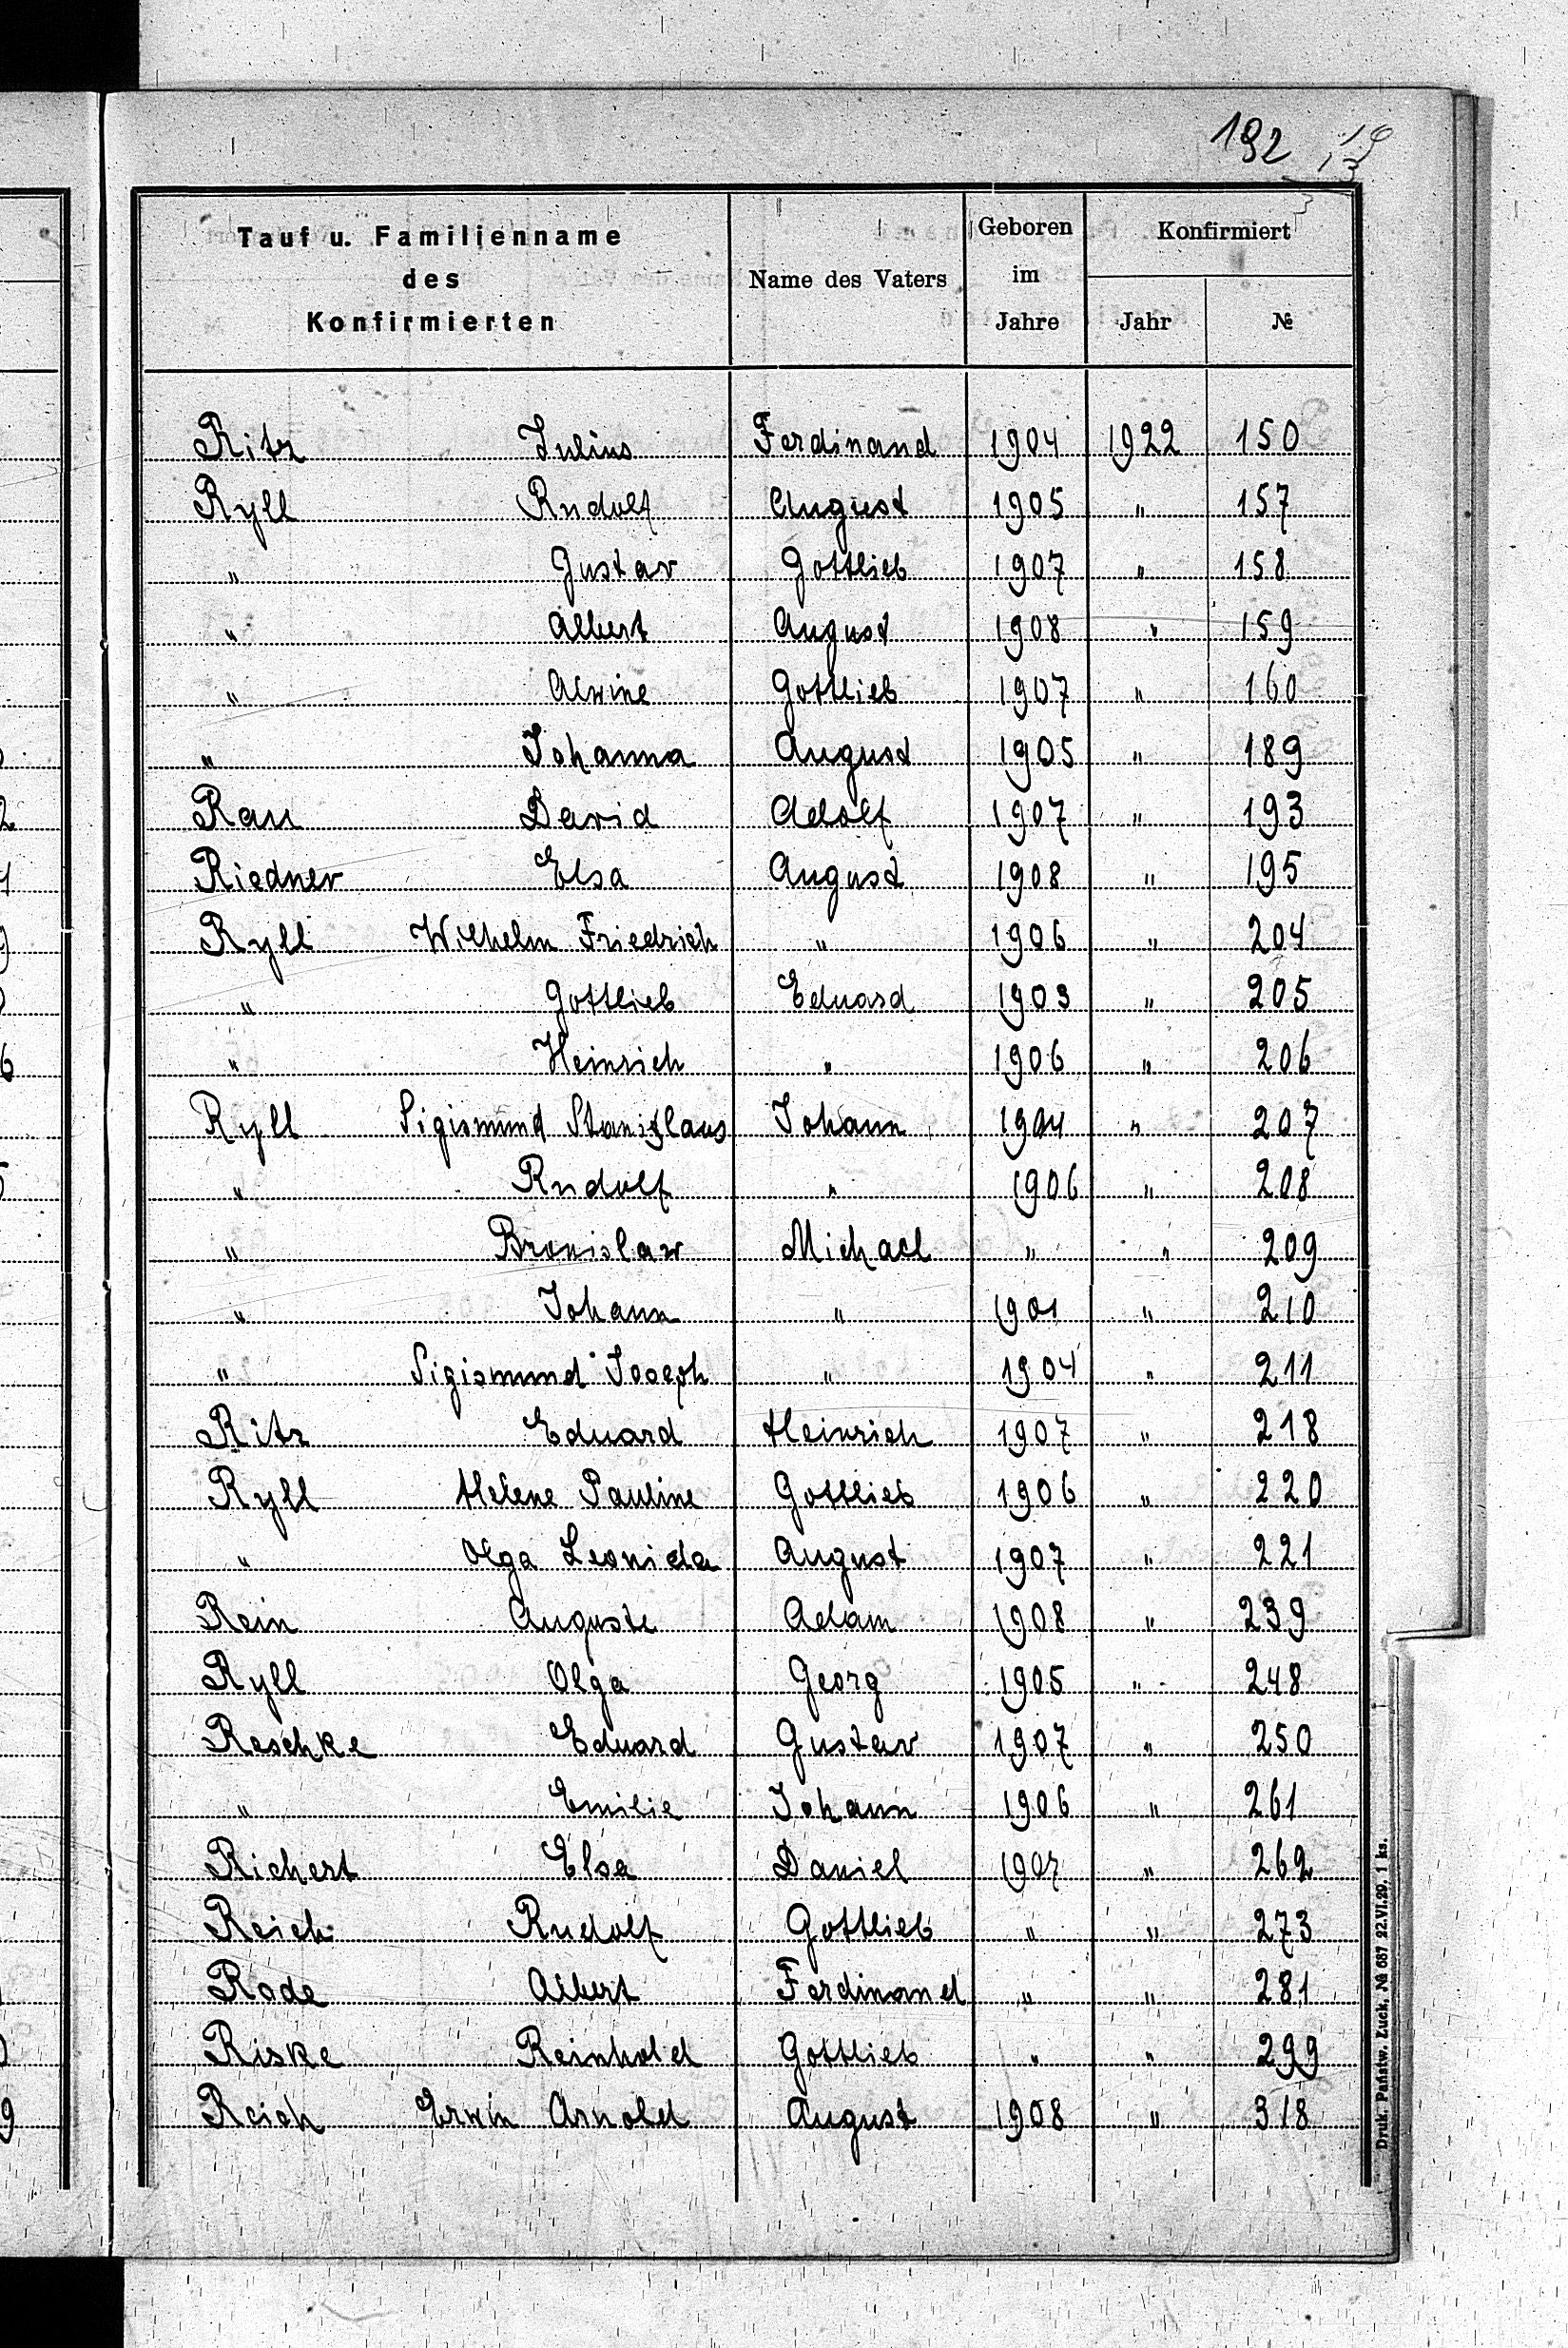 192
Tauf u. Familienname des Konfirmierten Name des Vaters Geboren im Jahre Konfirmiert Jahr №
Ritz Julius Ferdinand 1904 1922 150
Ryll Rudolf August 1905 " 157
" Gustav Gottlieb 1907 " 158
" Albert August 1908 " 159
" Alwine Gottlieb 1907 " 160
" Johanna August 1905 " 189
Rau David Adolf 1907 " 193
Riedner Elsa August 1908 " 195
Ryll Wilhelm Friedrich " 1906 " 204
" Gottlieb Eduard 1903 " 205
" Heinrich " 1906 " 206
Ryll Sigismund Stanislaus Johann 1904 " 207
" Rudolf " 1906 " 208
" Bronislaw Michael " " 209
" Johann " 1901 " 210
" Sigismund Joseph " 1904 " 211
Ritz Eduard Heinrich 1907 " 218
Ryll Helene Pauline Gottlieb 1906 " 220
" Olga Leonida August 1907 " 221
Rein Auguste Adam 1908 " 239
Ryll Olga Georg 1905 " 248
Reschke Eduard Gustav 1907 " 250
" Emilie Johann 1906 " 261
Richert Elsa Daniel 1907 " 262
Reich Rudolf Gottlieb " " 273
Rode Albert Ferdinand " " 281
Riske Reinhold Gottlieb " " 299
Reich Erwin Arnold August 1908 " 318
Druk. Państw. Łuck, № 687 22.VI.29. 1 ks.